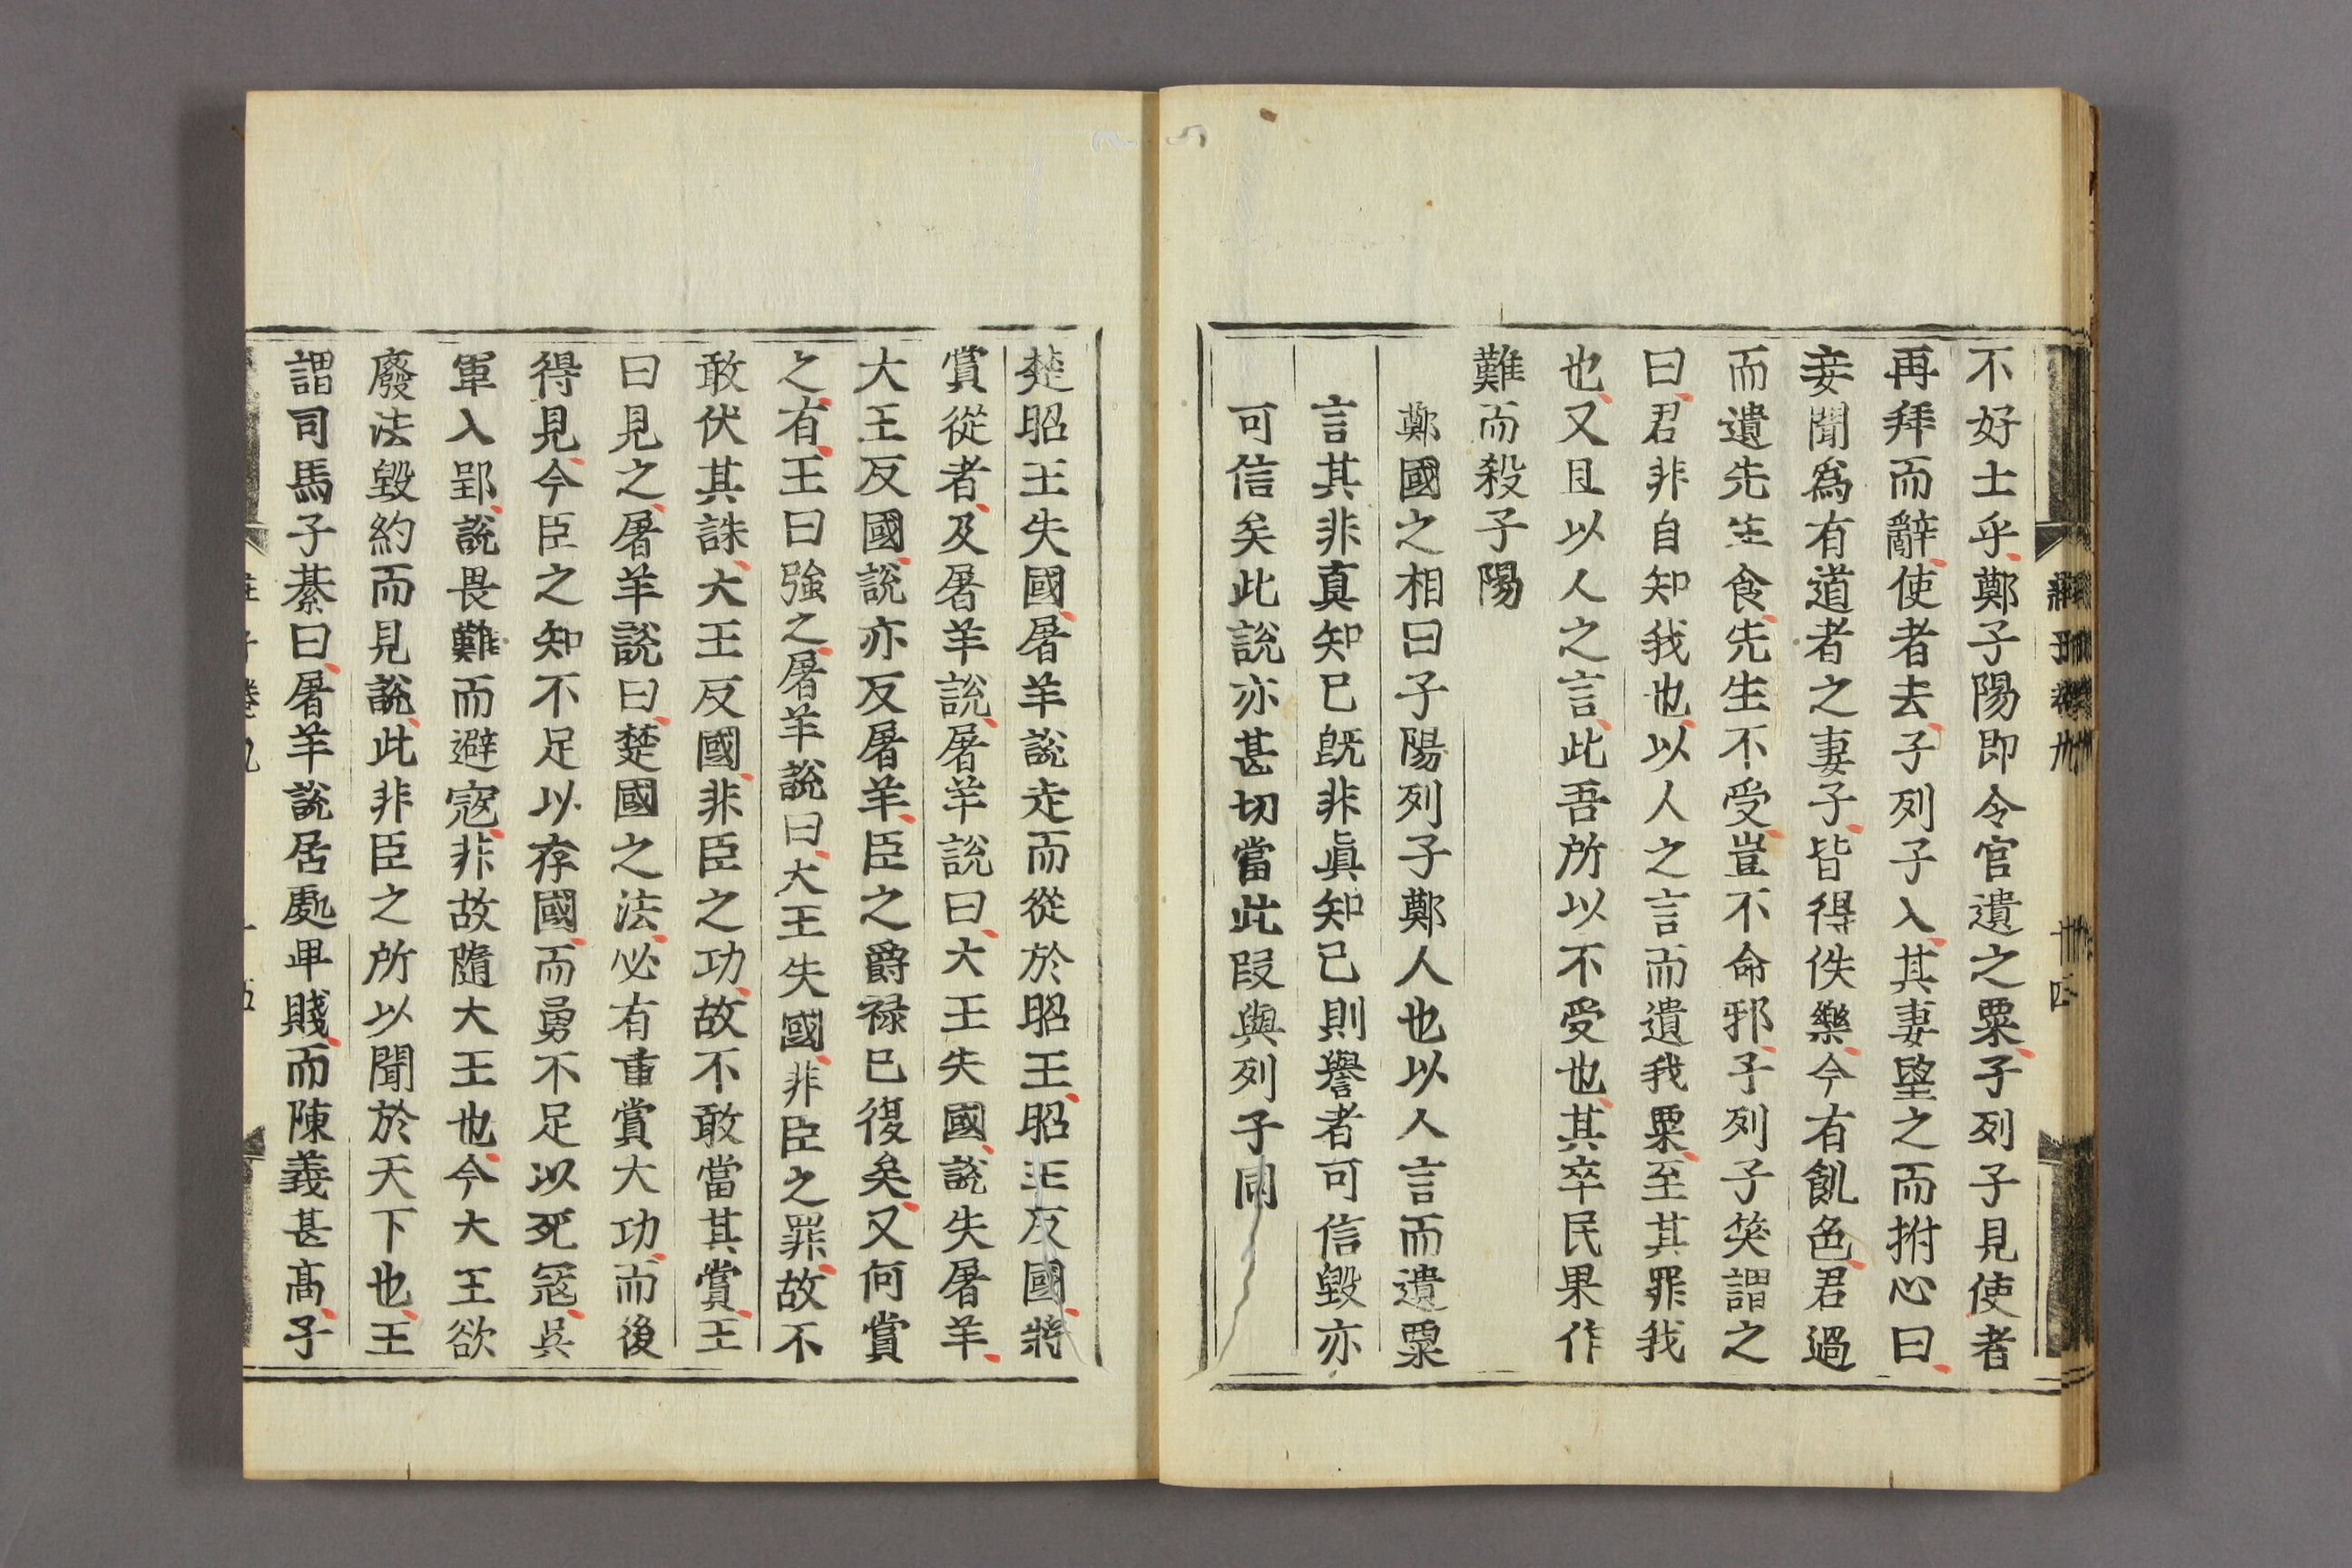 不好士乎鄭子陽即令官遺之粟子列子見使者
再拜而辭使者去子列子入其妻望之而拊心曰
妾聞爲有道者之妻子皆得佚樂今有飢色君過
而遺先生食先生不受豈不命邪子列子笑謂之
曰君非自知我也以人之言而遺我粟至其罪我
也又且以人之言此吾所以不受也其卒民果作
難而殺子陽
鄭國之相曰子陽列子鄭人也以人言而遺粟
言其非真知已既非眞知己則譽者可信毀亦
可信矣此說亦甚切當此段與列子同
楚昭王失國屠羊說走而從於昭王昭王反國將
賞從者及屠羊說屠羊說曰大王失國說失屠羊
大王反國說亦反屠羊臣之爵禄已復矣又何賞
之有王曰強之屠羊說曰大王失國非臣之罪故不
敢伏其誅大王反國非臣之功故不敢當其賞王
曰見之屠羊說曰楚國之法必有重賞大功而後
得見今臣之知不足以存國而勇不足以死冦吳
軍入郢說畏難而避寇非故隨大王也今大王欲
廢法毀約而見說此非臣之所以聞於天下也王
謂司馬子綦曰屠羊說居處卑賤而陳義甚髙子